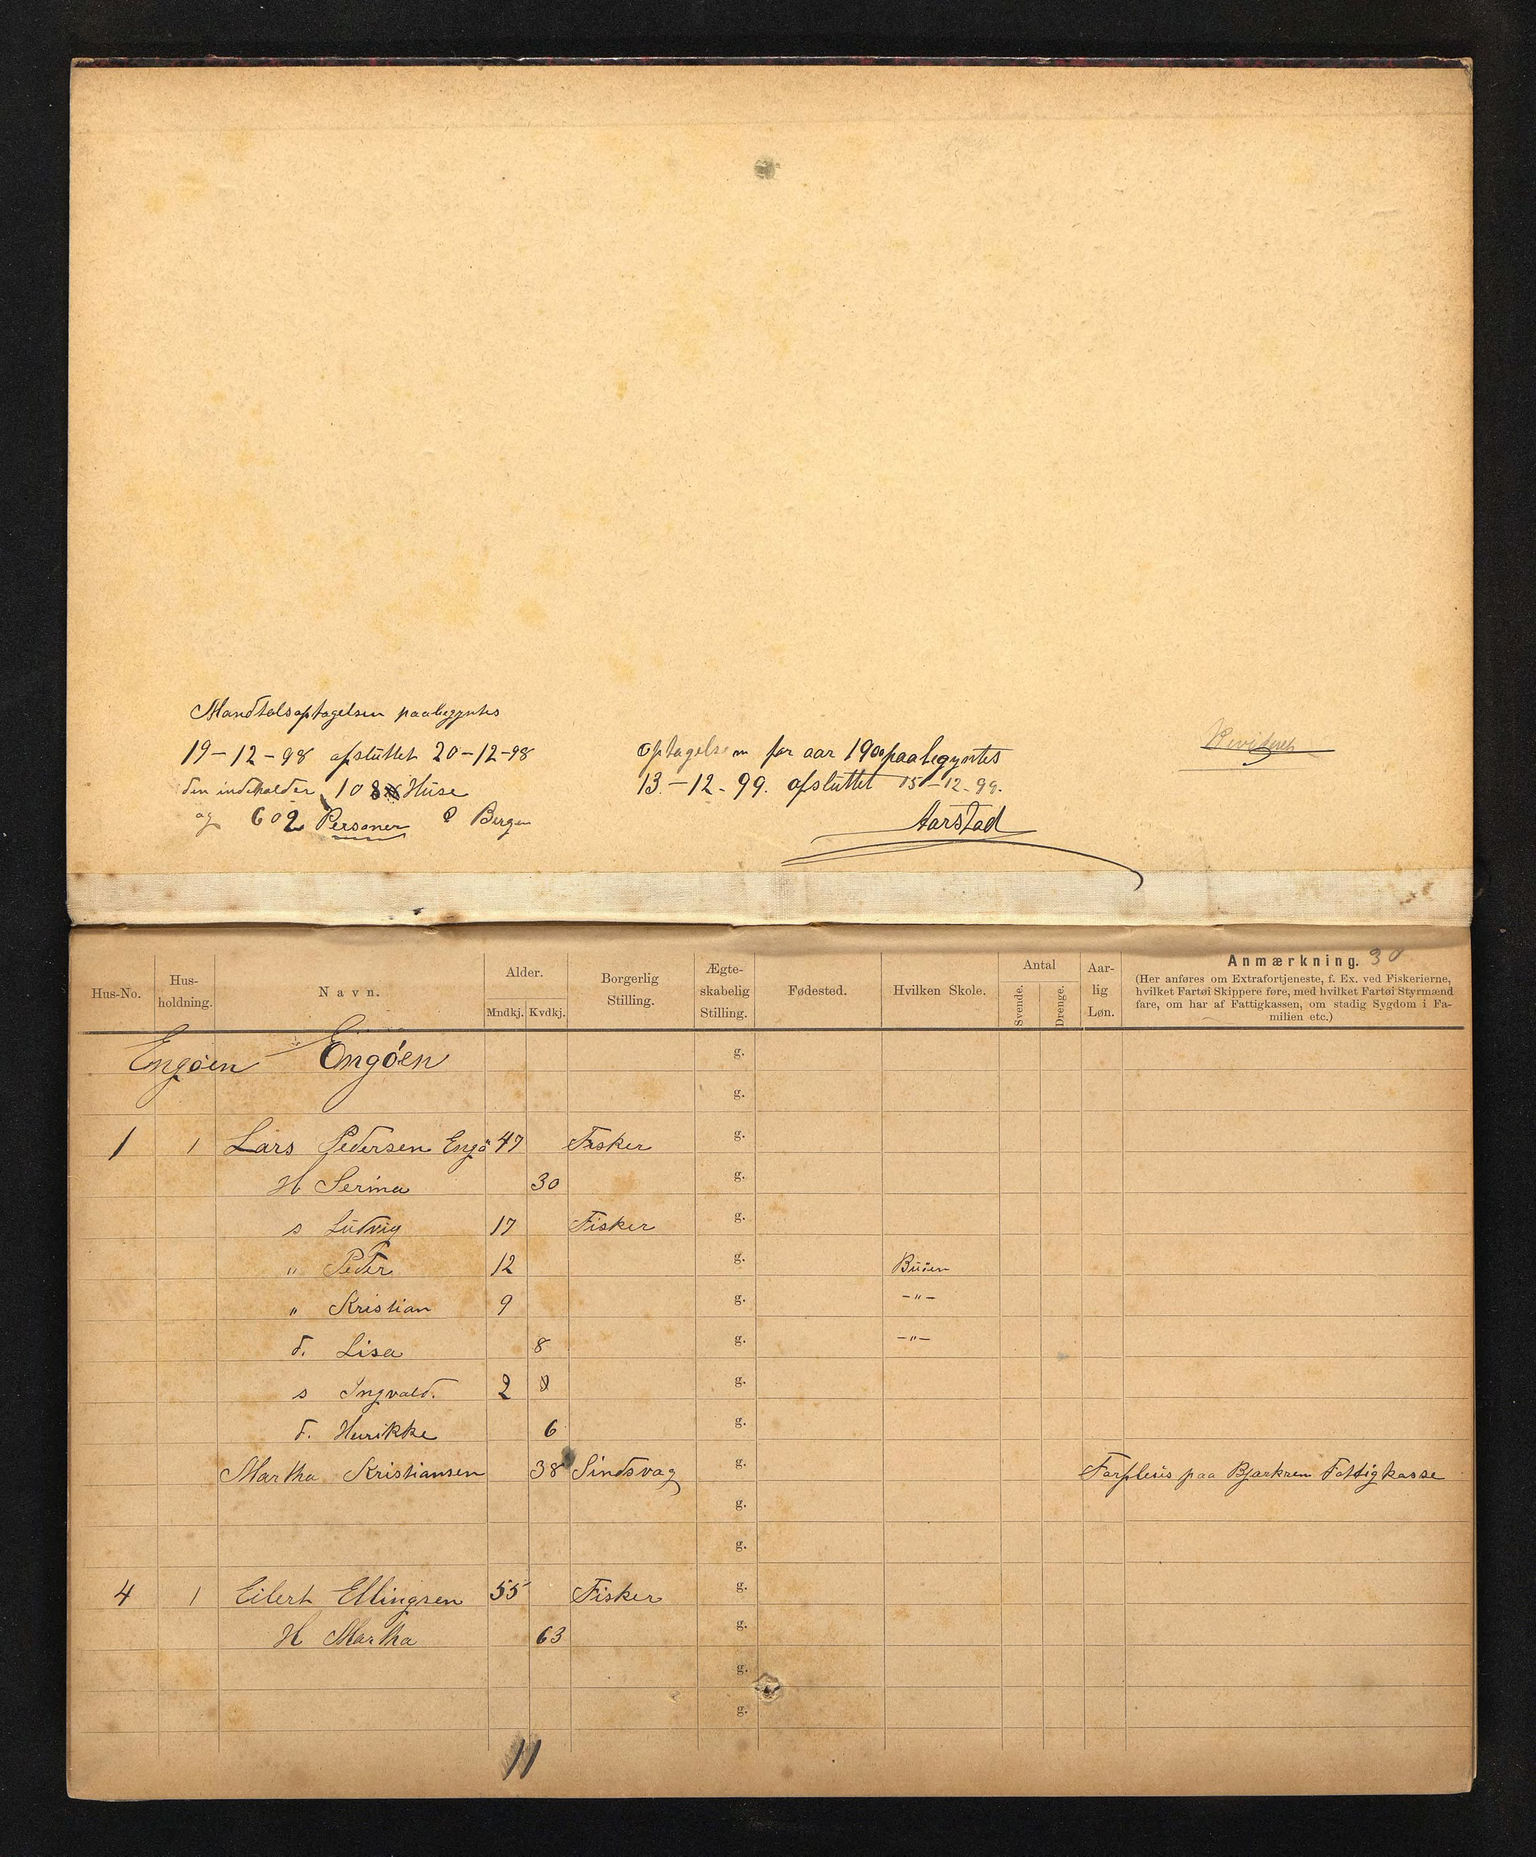 Mandtalsoptagelsen paabegyntes
19-12-98 afsluttet 20-12-98
den indeholder 108 Huse
og 602 Personer Bergen
Optagelsen for aar 1900 paabegyntes
13.-12-99. afsluttet 15-12-99.
Aarstad
Revideret
30
Hus-No. Hus-holdning. Navn. Alder. Mndkj. Kvdkj. Borgerlig Stilling. Ægte-skabelig Stilling. Fødested. Hvilken Skole. Antal Svende. Drenge. Aar-lig Løn. Anmærkning.
(Her anføres om Extrafortjeneste, f. Ex. ved Fiskerierne,
hvilket Fartøi Skippere føre, med hvilket Fartøi Styrmænd
fare, om har af Fattigkassen, om stadig Sygdom i Fa-
milien etc.)
Engøen Engøen g.
g.
1 1 Lars Pedersen Engø 47 Fisker g.
H Serina 30 g.
s Ludvig 17 Fisker g.
" Peder 12 g. Buøen
" Kristian 9 g. -"-
d. Lisa 8 g. -"-
s Ingvald. 2 g.
d. Henrikke 6 g.
Martha Kristiansen 38 Sindsvag g. Forpleies paa Bjarkøen Fattigkasse
g.
g.
4 1 Eilert Ellingsen 55 Fisker g.
H Martha 63 g.
g.
g.
11